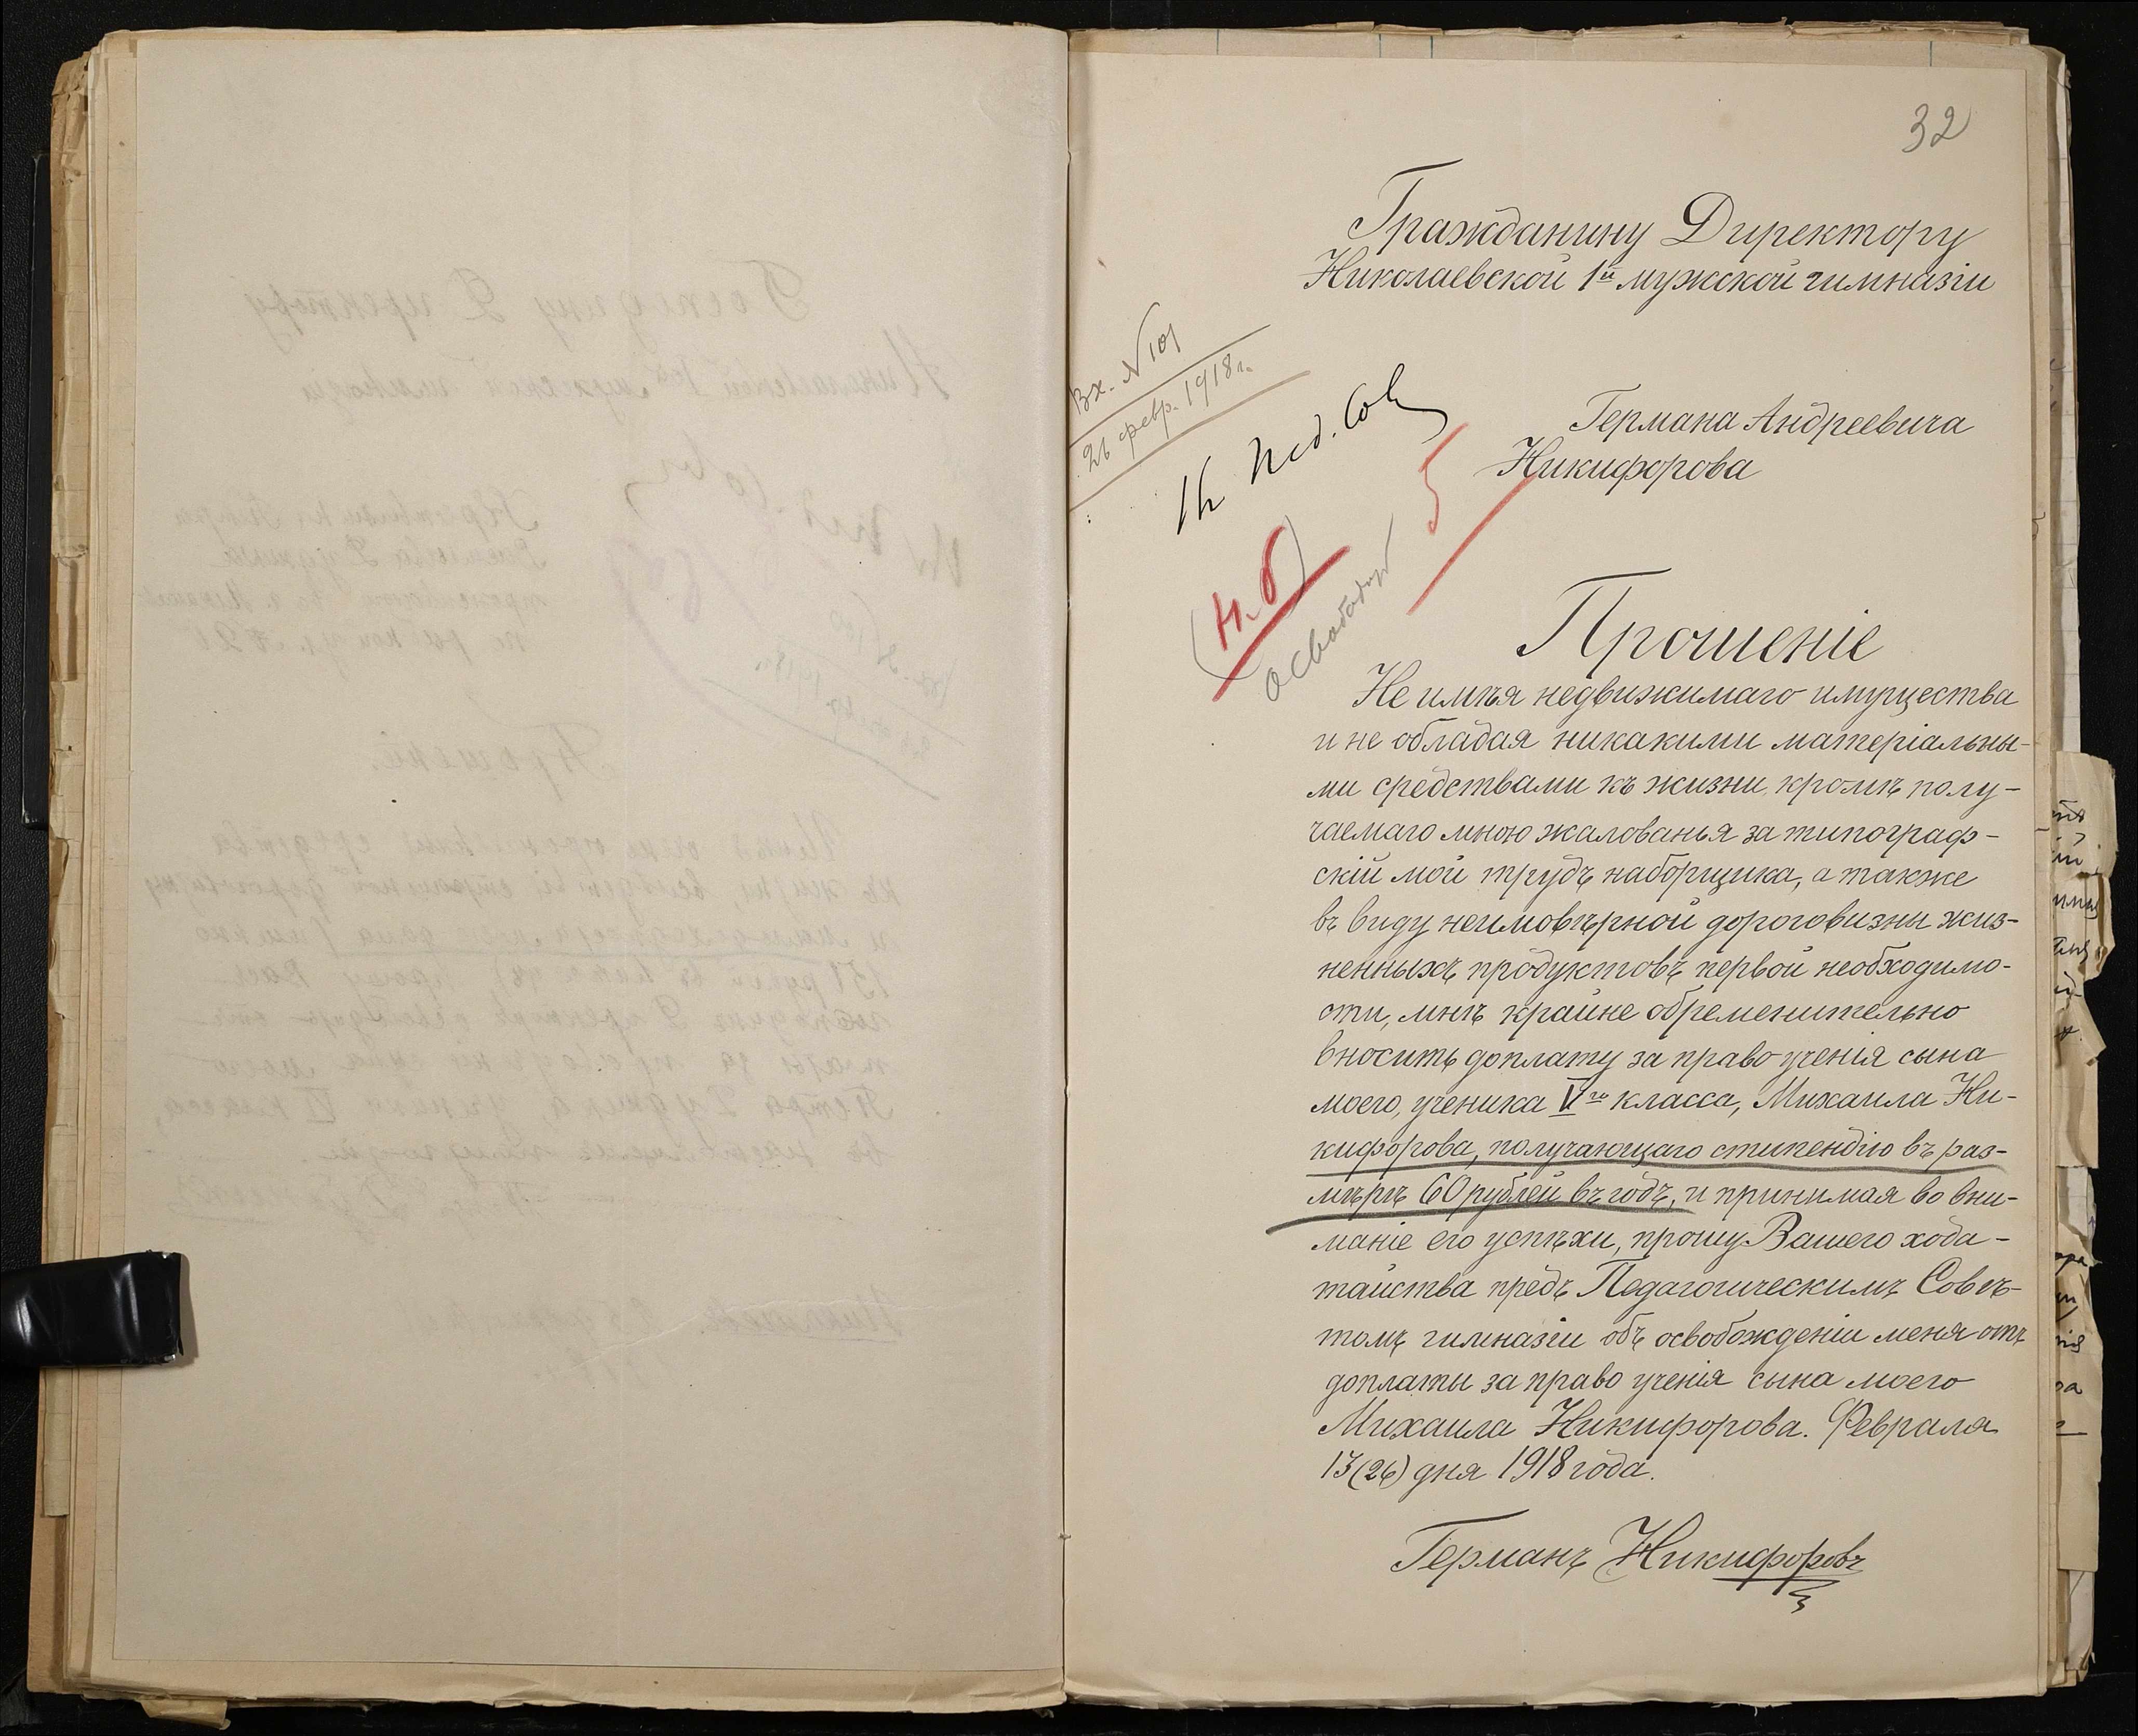 32
Гражданину Директору
Николаевской 1й мужской гимназіи
Вх. N 101
26 февр. 1918 г.
Пед. Сов
Германа Андреевича
Никифорова
5
освободить
Прошеніе
Не имѣя недвижимаго имущества
и не обладая никакими матеріальны-
ми средствами къ жизни, кромѣ полу-
чаемаго мною жалованья за типограф-
скій мой трудъ наборщика, а также
въ виду неимовѣрной дороговизны жиз-
ненныхъ продуктовъ первой необходимо-
сти, мнѣ крайне обременительно
вносить доплату за право ученія сына
моего, ученика Vго класса, Михаила Ни-
кифорова, получающаго стипендію въ раз-
мѣрѣ 60 рублей въ годъ, и принимая во вни-
маніе его успѣхи, прошу Вашего хода-
тайства предъ Педагогическимъ Совѣ-
томъ гимназіи объ освобожденіи меня отъ
доплаты за право ученія сына моего
Михаила Никифорова. Февраля
13(26) дня 1918 года.
Германъ Никифоровъ